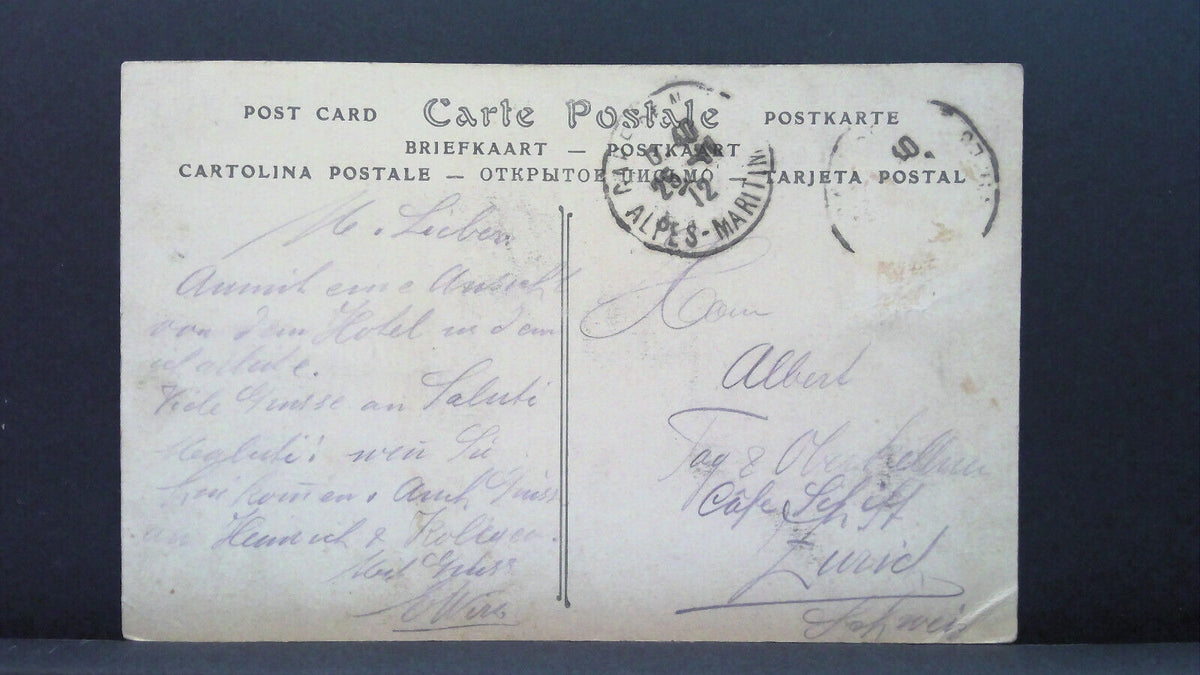 POST CARD Carte Postale POSTKARTE
BRIEFKAART — POSTKAART
CARTOLINA POSTALE — ОТКРЫТОЕ ПИСЬМО — TARJETA POSTAL
25 12
ALPES-MARITIM
M. Lieber
Anmit eine Ansicht
von dem Hotel in dem
Viele Grüsse an Saluti
wen Sie
komen. Auch Grüss
an Heinrich & Kollegen.
Mit Gruss
Albert
Tag & Oberkellner
Café Schiff
Zürich
Schweiz